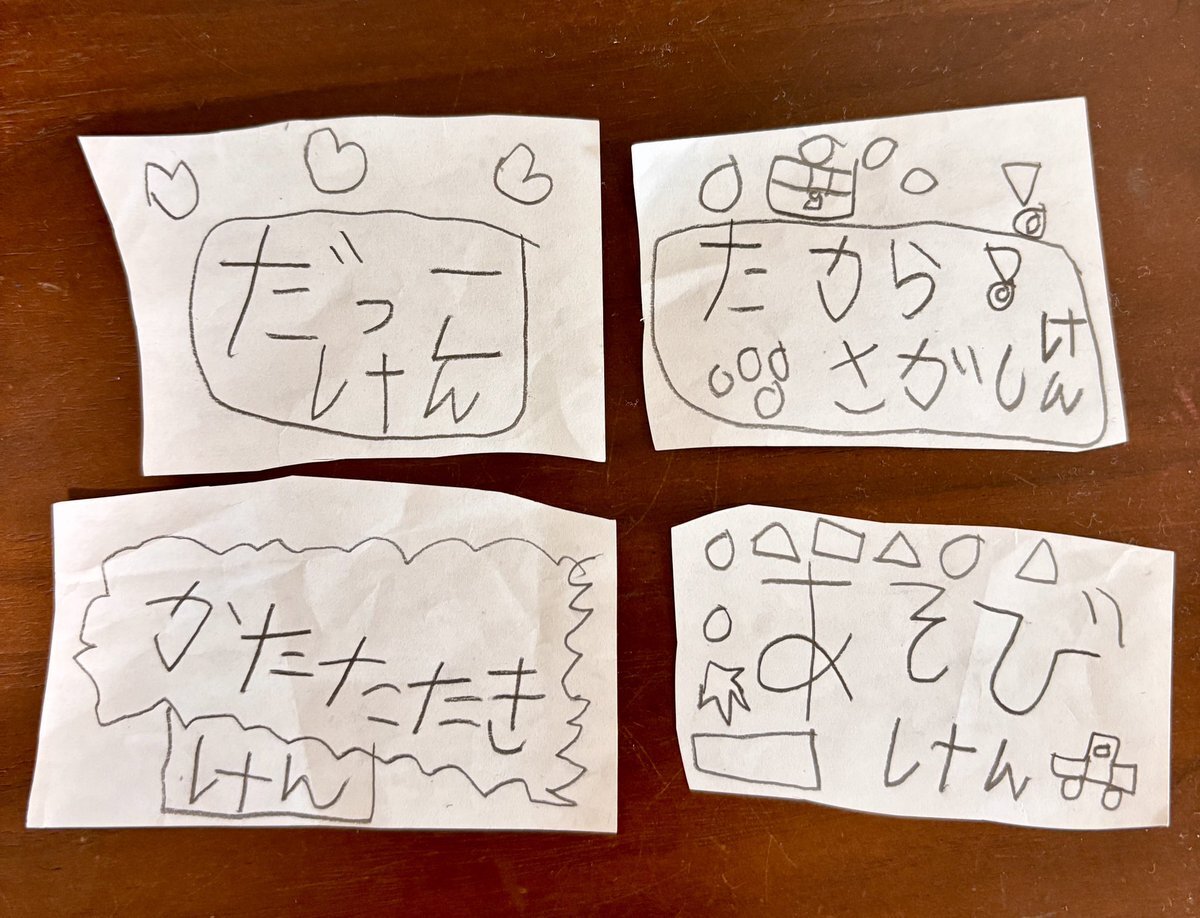 だっこ
けん
たから
さがしけん
かたたたき
けん
あそび
けん